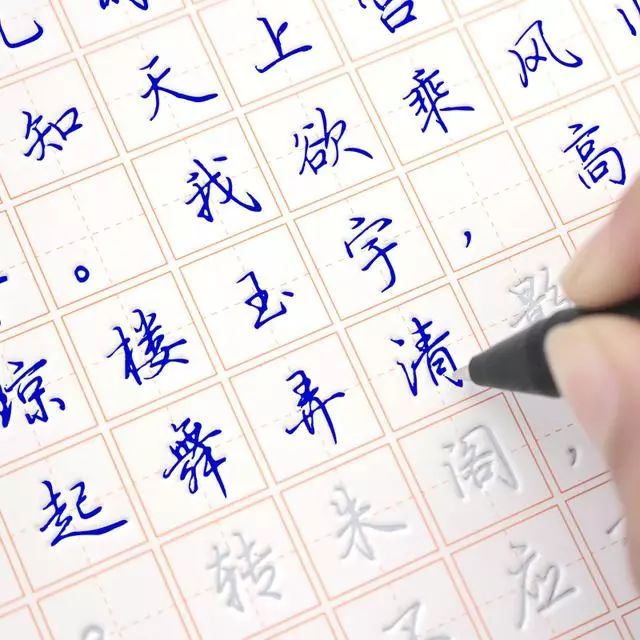 知天上宫
。我欲乘风
琼楼玉宇，高
起舞弄清影
。转朱阁，
应